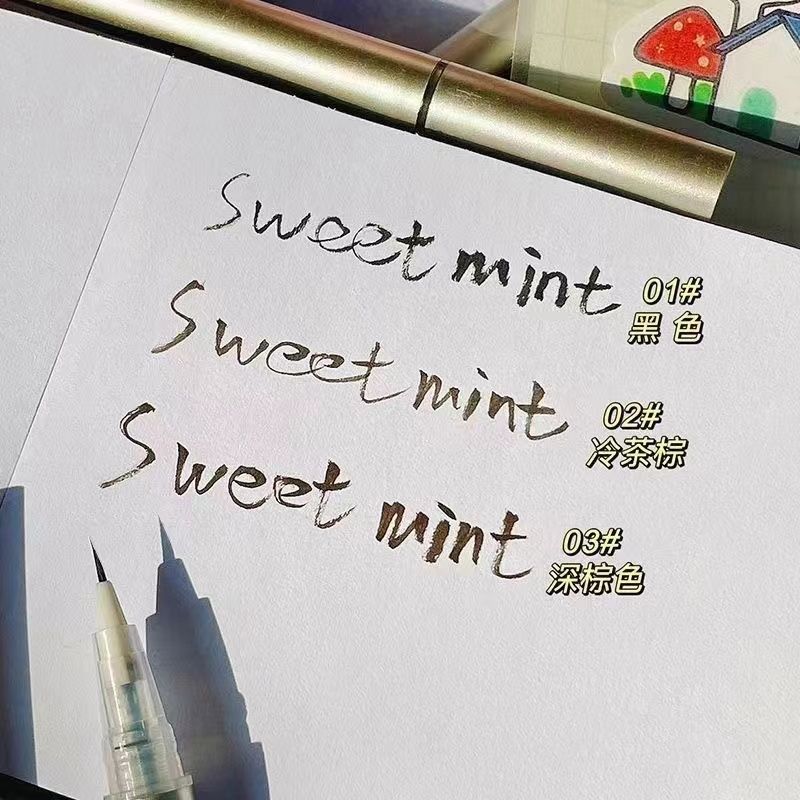 Sweet mint
01#
黑色
Sweet mint
02#
冷茶棕
Sweet mint
03#
深棕色